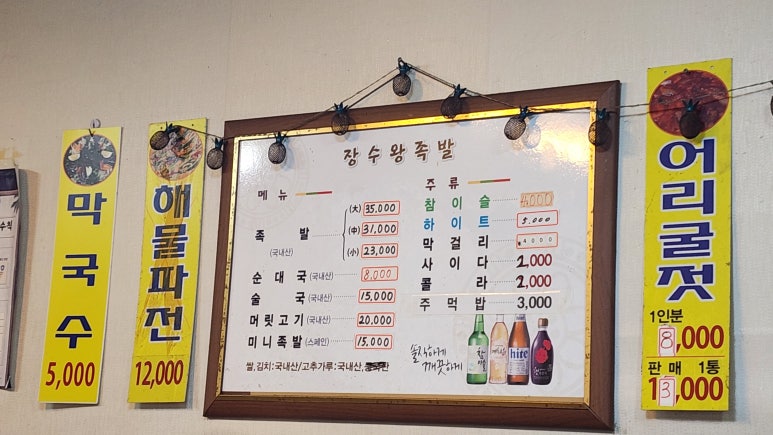 막국수
5,000
해물파전
12,000
장수왕족발
메뉴
족발 (국내산)
(大) 35,000
(中) 31,000
(小) 23,000
순대국 (국내산) 8,000
술국 (국내산) 15,000
머릿고기 (국내산) 20,000
미니족발 (스페인) 15,000
쌀,김치:국내산/고춧가루:국내산,
주류
참이슬 4000
하이트 5,000
막걸리 4000
사이다 2,000
콜라 2,000
주먹밥 3,000
솔직하게
깨끗하게
hite
어리굴젓
1인분
8,000
판매 1통
13,000